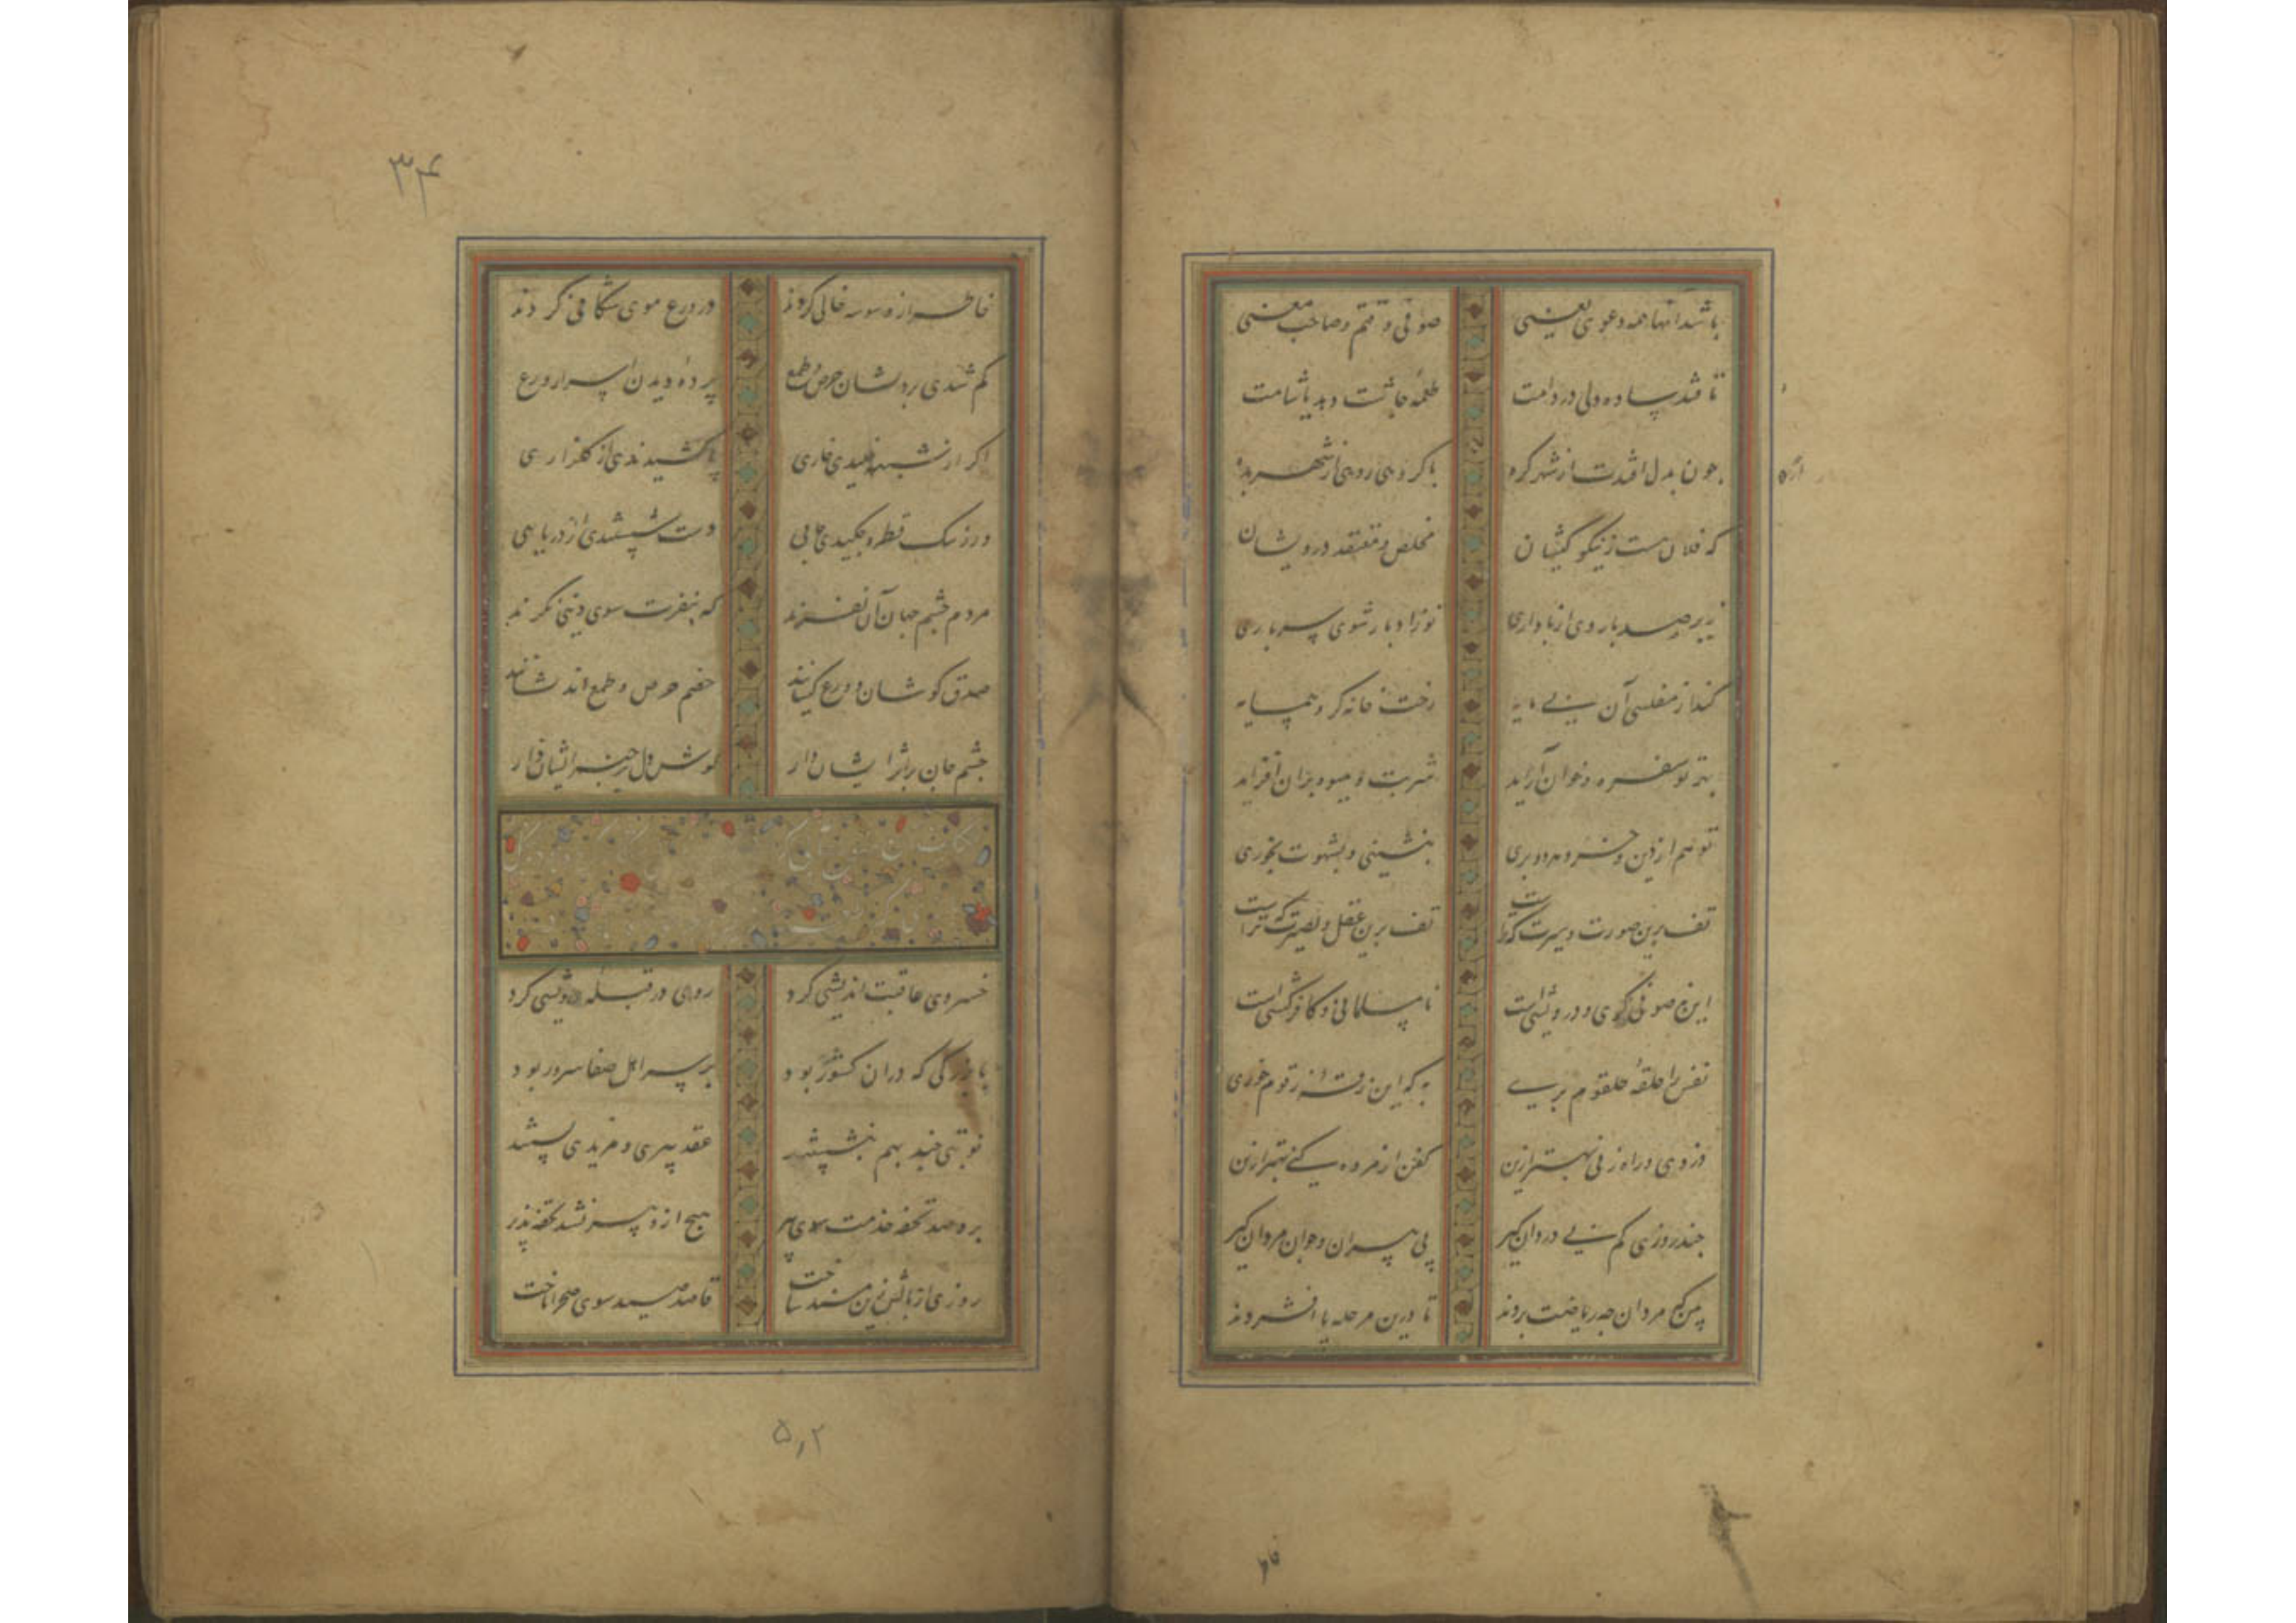 باشد اینها همه دعوی یعنی صوفی و قتم و صاحب معنی
تا فتد ساده دلی در دامت طعمهٔ چاشت دهد یا شامت
چون بدل افتدت از شهر گره با گروهی روی از شهر بده
که فلان هست ز نیکو کیشان مخلص و معتقد درویشان
زیر صد بار وی از ناداری تو ز ادبار شوی سرباری
کند از مفلسی آن بی مایه رخت خانه گرو همسایه
بهر تو سفره و خوان آراید شربت و میوه بران افزاید
تو هم از دین و خرد بری بنشینی و بشهوت بخوری
تف برین صورت و سیرت که تراست تف برین عقل و بصیرت که تراست
این نه صوفی گری و درویشی است نامسلمانی و کافر کیشی است
نفس را حلقهٔ حلقوم بری به که این زقه ز زقوم خوری
دزدی و راه زنی بهتر ازین کفن از مرده کنی بهتر ازین
چند روزی کم بی دردان گیر پی پیران و جوان مردان گیر
بین که مردان چه ریاضت بردند تا درین مرحله پا افشردند
۳۴
خاطر از وسوسه خالی کردند در ورع موی شکافی کردند
کم شدی بردلشان حرص و طمع پردهٔ دیدن اسرار ورع
اگر از شبهه خلیدی خاری پا کشیدندی از گلزاری
ور ز یک قطره چکیدی جایی دست شستندی از دریایی
مردم چشم جهان آن نفرند که بنفرت سوی دنیی نگرند
صدق کوشان و ورع کیشانند خصم حرص و طمع اندیشانند
چشم جان بر اثر ایشان دار گوش دل بر خبر ایشان دار
خسروی عاقبت اندیشی کرد روی در قبله درویشی کرد
با بزرگی که در آن کشور بود بر سر اهل صفا سرور بود
نوبتی چند بهم بنشستند عقد پیری و مریدی بستند
برد صد تحفه خدمت سوی پیر هیچ ازو پیر نشد تحفه پذیر
روزی از بالش زین مسند ساخت قاصد صید سوی صحرا تاخت
۵٫۲